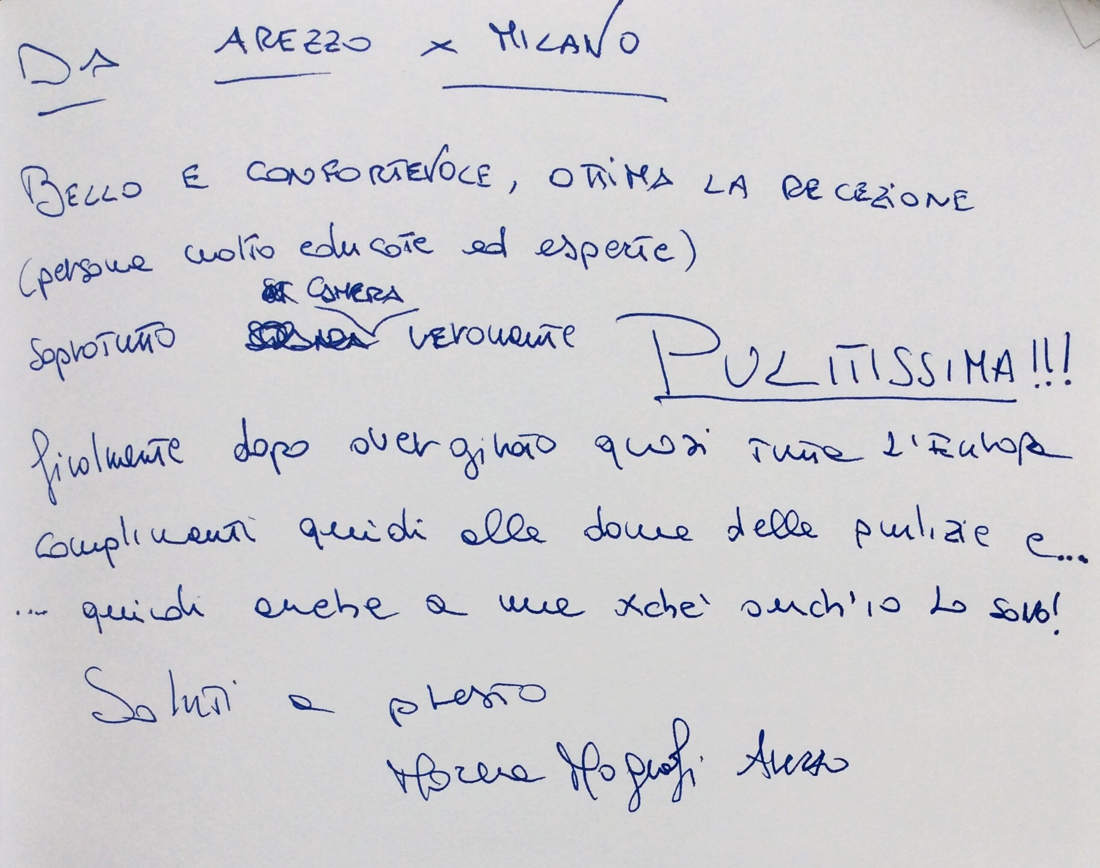 DA AREZZO x MILANO
BELLO E CONFORTEVOLE, OTTIMA LA RECEZIONE
(persone molto educate ed esperte)
CAMERA
soprotutto veramente PULITISSIMA!!!
finalmente dopo aver girato quasi tutta l'Europa
complimenti quindi alle donne delle pulizie e...
... quindi anche a me xchè anch'io lo sono!
Saluti a presto
Arezzo